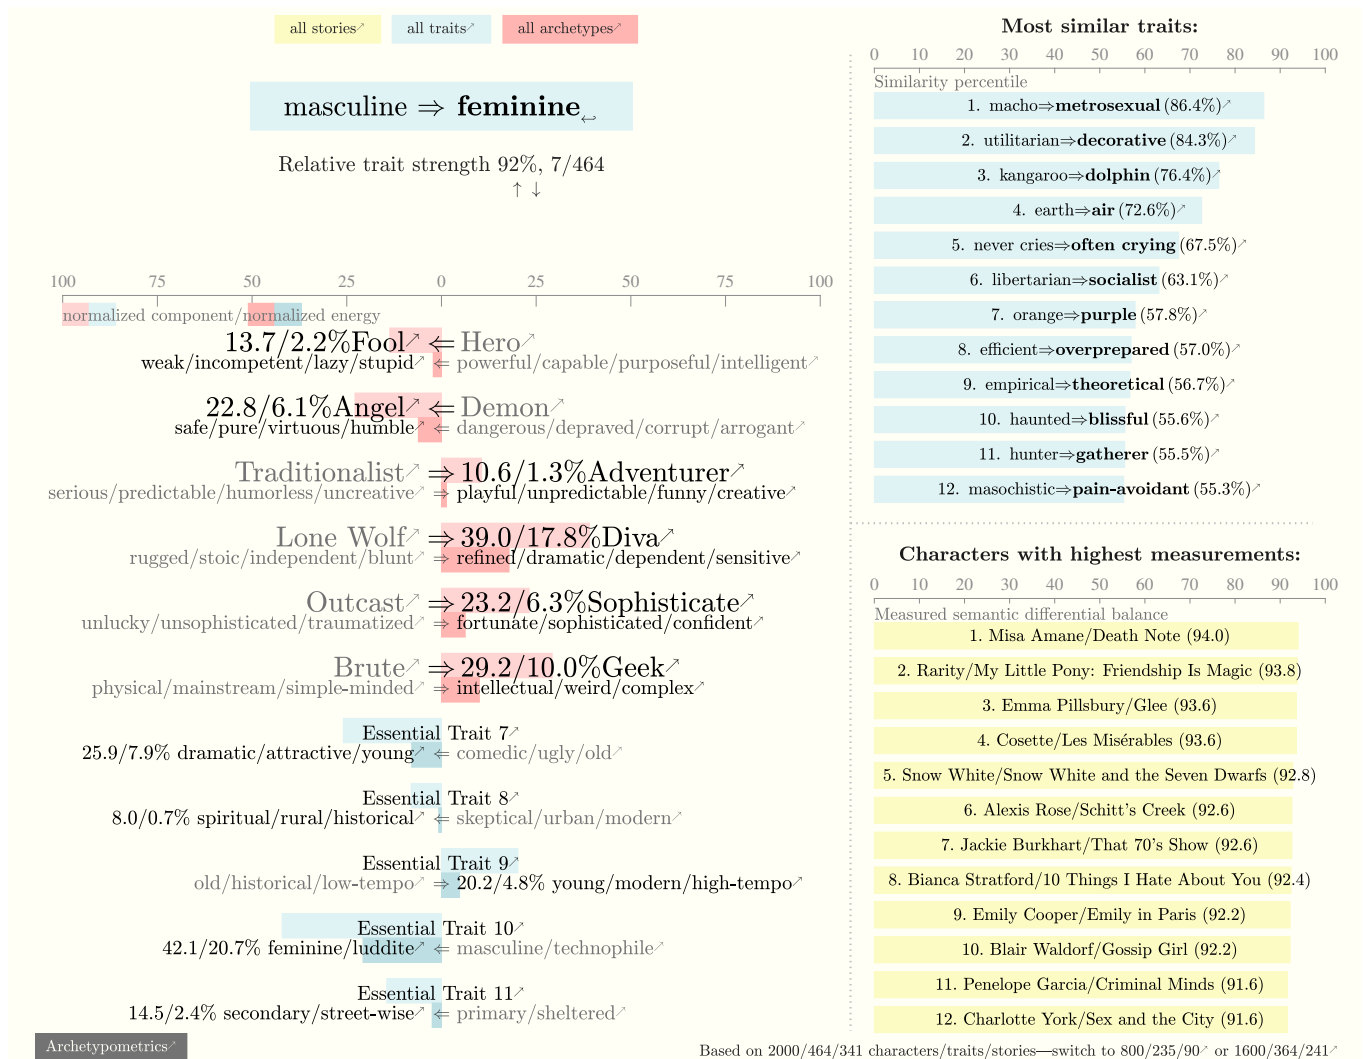 all stories↗ all traits↗ all archetypes↗
masculine ⇒ feminine↩
Relative trait strength 92%, 7/464
↑ ↓
100 75 50 25 0 25 50 75 100
normalized component/normalized energy
13.7/2.2%Fool↗ ⇐ Hero↗
weak/incompetent/lazy/stupid↗ ⇐ powerful/capable/purposeful/intelligent↗
22.8/6.1%Angel↗ ⇐ Demon↗
safe/pure/virtuous/humble↗ ⇐ dangerous/depraved/corrupt/arrogant↗
Traditionalist↗ ⇒ 10.6/1.3%Adventurer↗
serious/predictable/humorless/uncreative↗ ⇒ playful/unpredictable/funny/creative↗
Lone Wolf↗ ⇒ 39.0/17.8%Diva↗
rugged/stoic/independent/blunt↗ ⇒ refined/dramatic/dependent/sensitive↗
Outcast↗ ⇒ 23.2/6.3%Sophisticate↗
unlucky/unsophisticated/traumatized↗ ⇒ fortunate/sophisticated/confident↗
Brute↗ ⇒ 29.2/10.0%Geek↗
physical/mainstream/simple-minded↗ ⇒ intellectual/weird/complex↗
Essential Trait 7↗
25.9/7.9% dramatic/attractive/young↗ ⇐ comedic/ugly/old↗
Essential Trait 8↗
8.0/0.7% spiritual/rural/historical↗ ⇐ skeptical/urban/modern↗
Essential Trait 9↗
old/historical/low-tempo↗ ⇒ 20.2/4.8% young/modern/high-tempo↗
Essential Trait 10↗
42.1/20.7% feminine/luddite↗ ⇐ masculine/technophile↗
Essential Trait 11↗
14.5/2.4% secondary/street-wise↗ ⇐ primary/sheltered↗
Archetypometrics↗
Most similar traits:
0 10 20 30 40 50 60 70 80 90 100
Similarity percentile
1. macho⇒metrosexual (86.4%)↗
2. utilitarian⇒decorative (84.3%)↗
3. kangaroo⇒dolphin (76.4%)↗
4. earth⇒air (72.6%)↗
5. never cries⇒often crying (67.5%)↗
6. libertarian⇒socialist (63.1%)↗
7. orange⇒purple (57.8%)↗
8. efficient⇒overprepared (57.0%)↗
9. empirical⇒theoretical (56.7%)↗
10. haunted⇒blissful (55.6%)↗
11. hunter⇒gatherer (55.5%)↗
12. masochistic⇒pain-avoidant (55.3%)↗
Characters with highest measurements:
0 10 20 30 40 50 60 70 80 90 100
Measured semantic differential balance
1. Misa Amane/Death Note (94.0)
2. Rarity/My Little Pony: Friendship Is Magic (93.8)
3. Emma Pillsbury/Glee (93.6)
4. Cosette/Les Misérables (93.6)
5. Snow White/Snow White and the Seven Dwarfs (92.8)
6. Alexis Rose/Schitt's Creek (92.6)
7. Jackie Burkhart/That 70's Show (92.6)
8. Bianca Stratford/10 Things I Hate About You (92.4)
9. Emily Cooper/Emily in Paris (92.2)
10. Blair Waldorf/Gossip Girl (92.2)
11. Penelope Garcia/Criminal Minds (91.6)
12. Charlotte York/Sex and the City (91.6)
Based on 2000/464/341 characters/traits/stories—switch to 800/235/90↗ or 1600/364/241↗